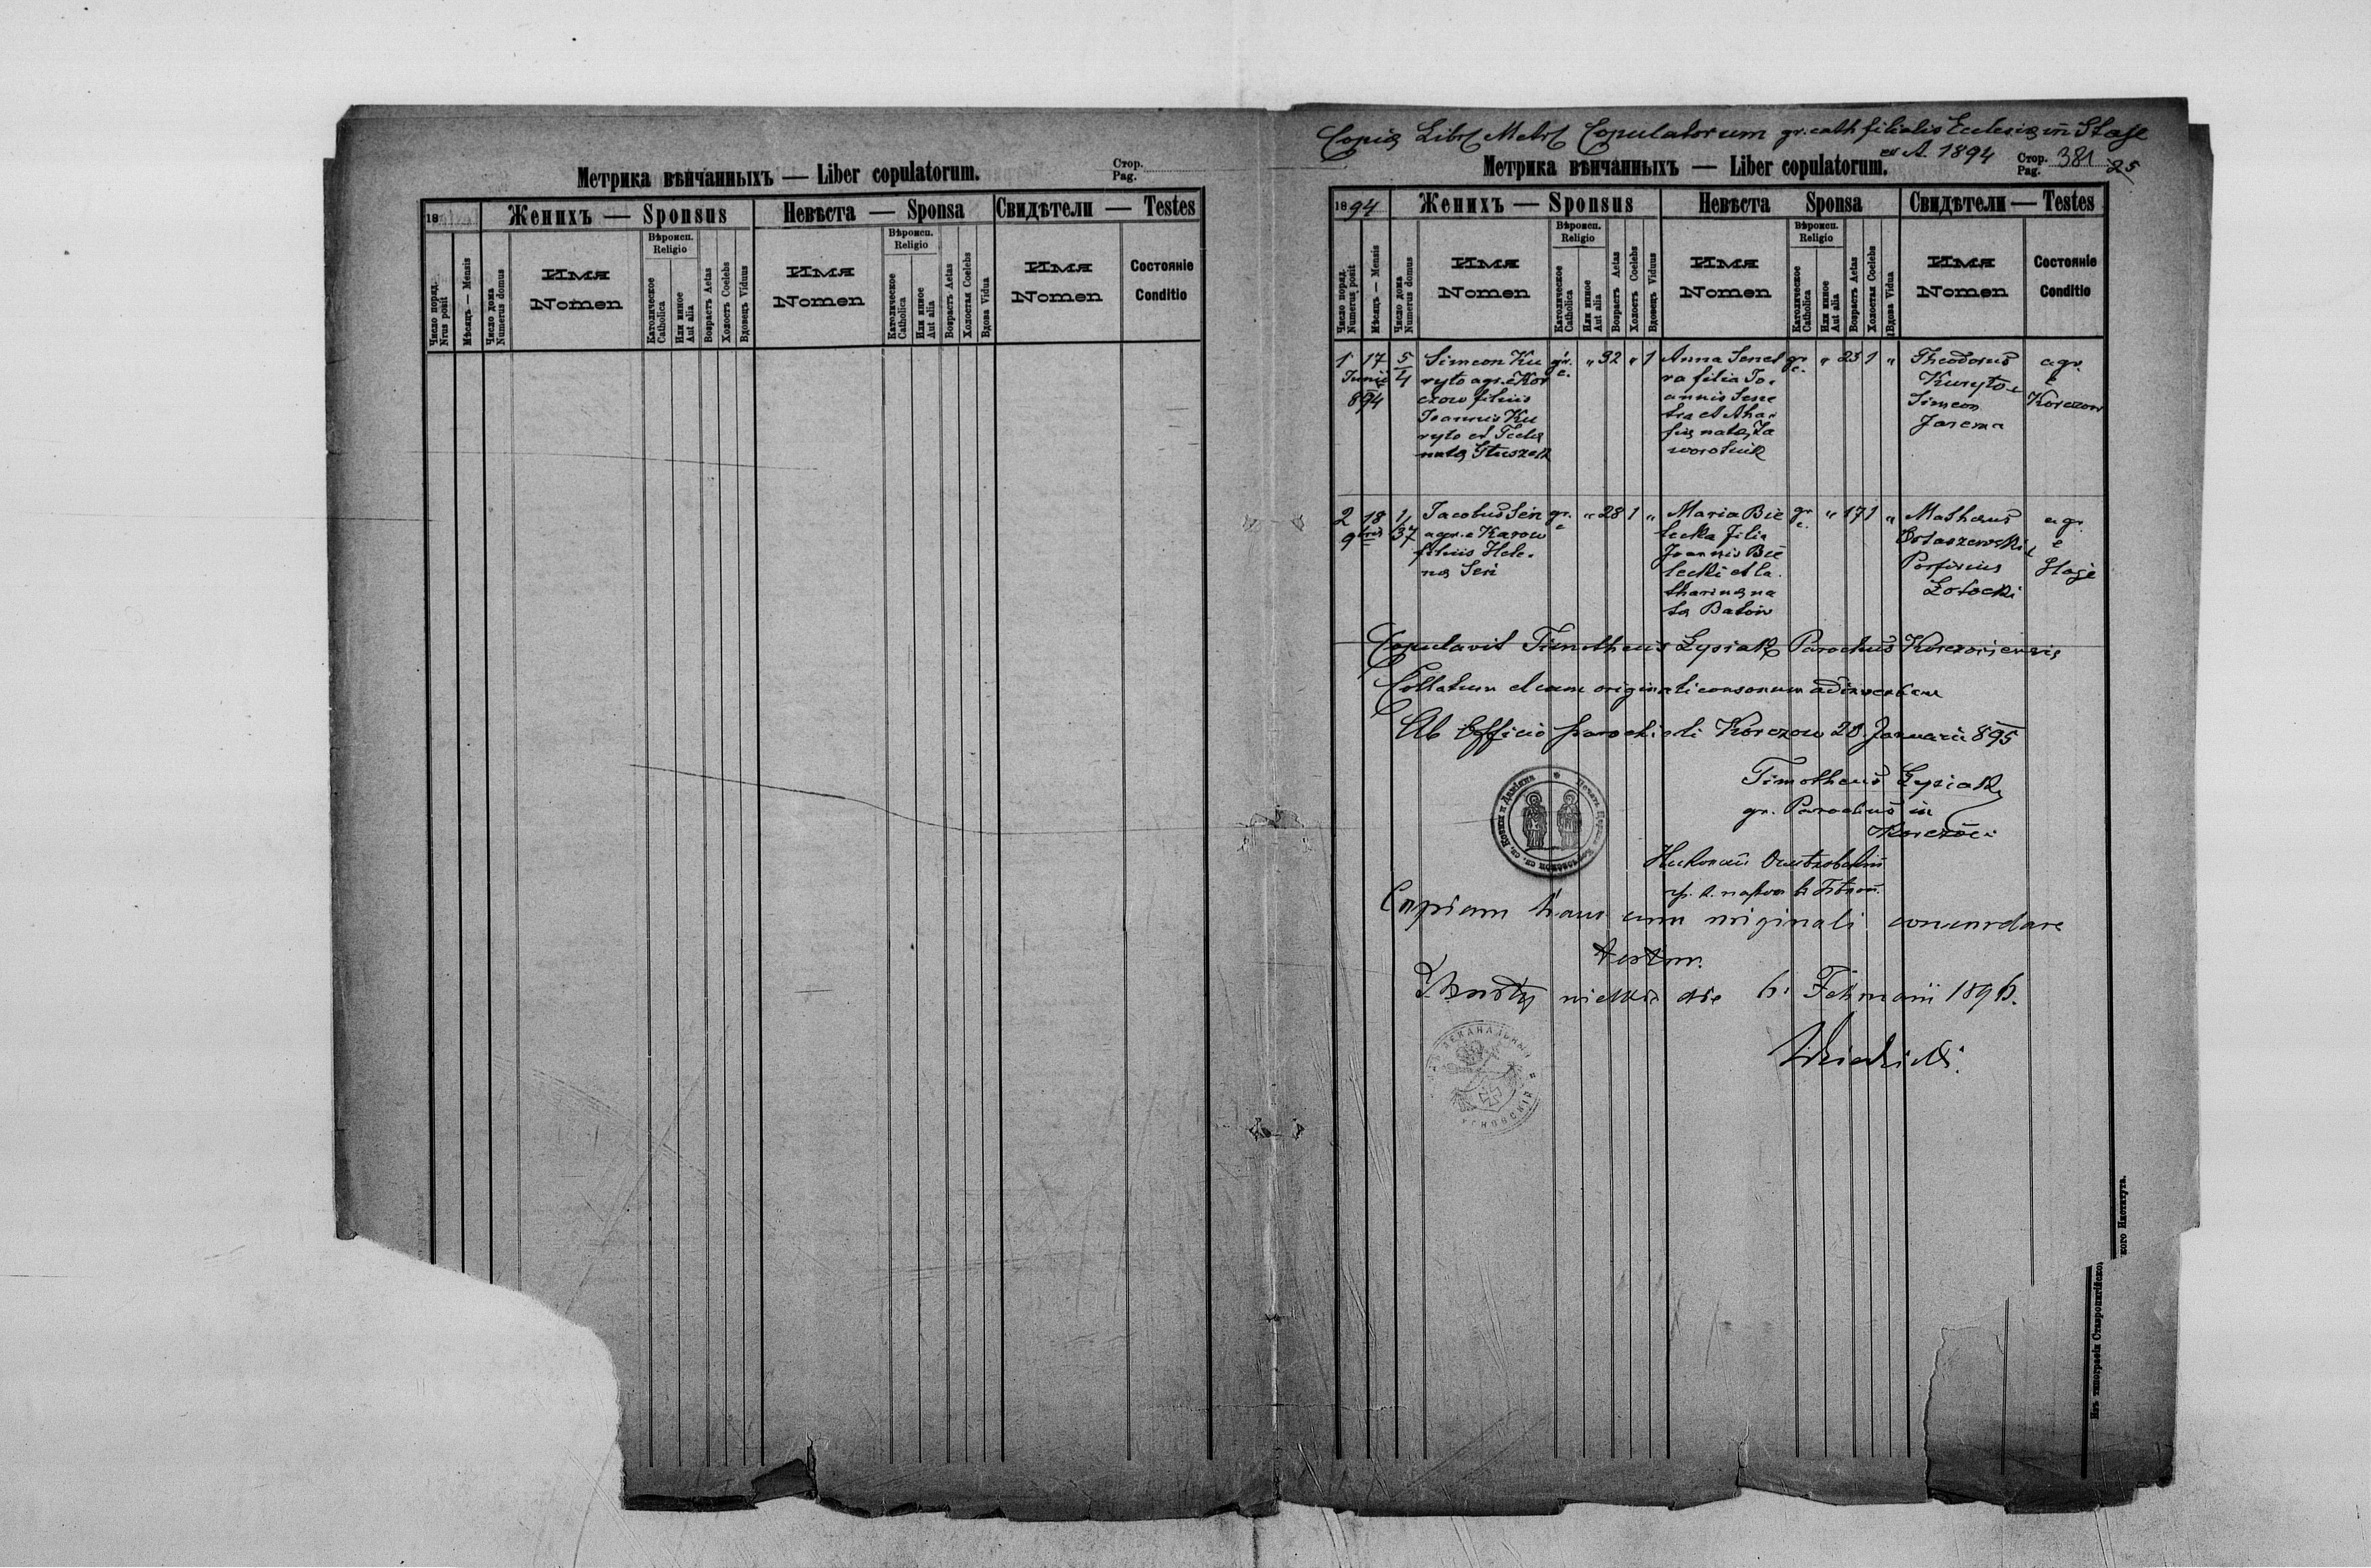 Метрика вѣнчанныхъ — Liber copulatorum.
Стор.
Pag.
18
Женихъ — Sponsus
Невѣста — Sponsa
Свидѣтели — Testes
Число поряд.
Nrus posit
Мѣсяцъ — Mensis
Число дома
Numerus domus
Имя
Nomen
Вѣроисп.
Religio
Католическое
Catholica
Или инное
Aut alia
Возрастъ Aetas
Холостъ Coelebs
Вдовецъ Viduus
Имя
Nomen
Вѣроисп.
Religio
Католическое
Catholica
Или инное
Aut alia
Возрастъ Aetas
Холостая Coelebs
Вдова Vidua
Имя
Nomen
Состояніе
Conditio
Copia Copulatorum gr. cath filialis Ecclesiæ in Staje
A. 1894
Метрика вѣнчанныхъ — Liber copulatorum.
Стор.
Pag.
381
25
1894
Женихъ — Sponsus
Невѣста Sponsa
Свидѣтели — Testes
Число поряд.
Numerus posit
Мѣсяцъ — Mensis
Число дома
Numerus domus
Имя
Nomen
Вѣроисп.
Religio
Католическое
Catholica
Или инное
Aut alia
Возрастъ Aetas
Холостъ Coelebs
Вдовецъ Viduus
Имя
Nomen
Вѣроисп.
Religio
Католическое
Catholica
Или инное
Aut alia
Возрастъ Aetas
Холостая Coelebs
Вдова Vidua
Имя
Nomen
Состояніе
Conditio
1
17
Junii
894
5
4
Simeon Ku
ryto agr. e Kor
czow filius
Joannis Ku
ryto et Teclæ
natæ
gr.
c.
" 32 " 1
Anna
ra filia Jo.
annis Sene
tra et Aha.
fiæ natæ Ja
worotnik
gr.
c.
" 23 1 "
Theodorus
Kuryto
Simeon
Jarema
agr.
e
Korczow
2
18
9bris
4
37
Jacobus Sen
agr. e Karow
filius Hele.
næ Sen
gr.
c
" 28 1 "
Maria Bie
lecka filia
Joannis Bie
lecki et Ca.
tharinæ na
tæ Batow
gr.
c.
" 17 1 "
Matheus
Ostaszewski
Porfirius
Zotocki
agr.
e
Staje
Copulavit Timotheus Łysiak Parochus Korczoviensis
Collatum et cum originali consonum adinventum
Ab Officio parochiali Korczow 28 Januarii 895
Timotheus Łysiak
gr. Parochus in
Korczow
Copiam hanc cum originali concordare
testor.
die 6. Februarii 1896.